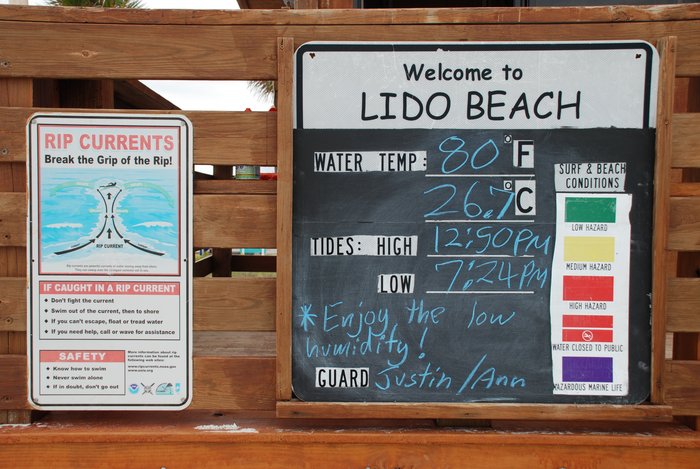 RIP CURRENTS
Break the Grip of the Rip!
RIP CURRENT
IF CAUGHT IN A RIP CURRENT
Don't fight the current
Swim out of the current, then to shore
If you can't escape, float or tread water
If you need help, call or wave for assistance
SAFETY
Know how to swim
Never swim alone
If in doubt, don't go out
More information about rip
currents can be found at the
following web sites:
www.ripcurrents.noaa.gov
www.usla.org
Welcome to
LIDO BEACH
WATER TEMP: 80°F
26.7°C
TIDES: HIGH 12:50PM
LOW 7:24PM
*Enjoy the low
humidity!
GUARD Justin/Ann
SURF & BEACH
CONDITIONS
LOW HAZARD
MEDIUM HAZARD
HIGH HAZARD
WATER CLOSED TO PUBLIC
HAZARDOUS MARINE LIFE